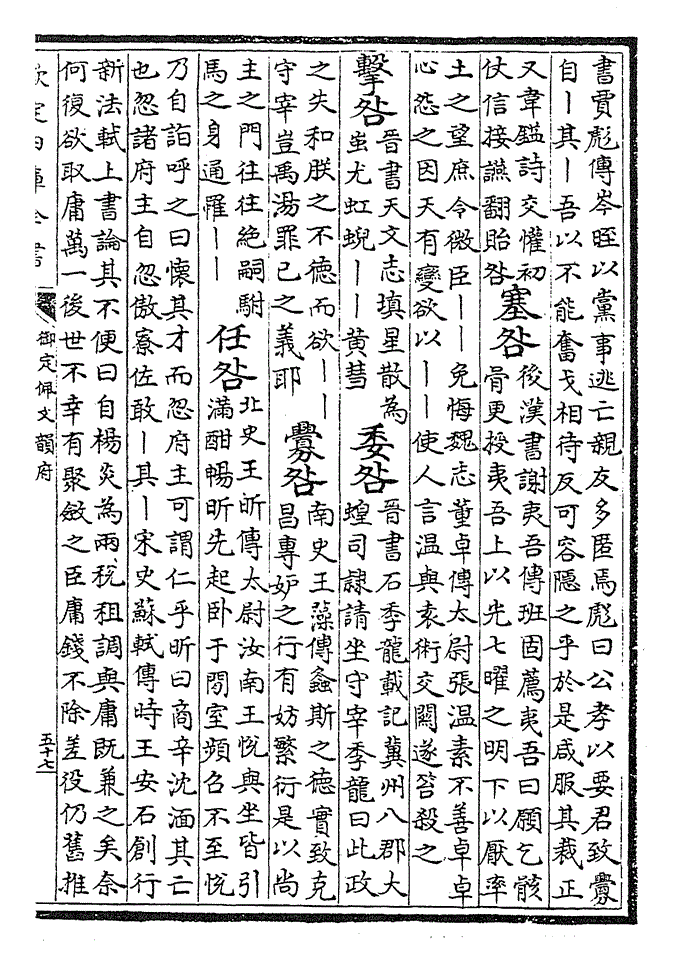 書賈彪傳岑晊以黨事逃亡親友多匿焉彪曰公孝以要君致釁
自丨其丨吾以不能奮戈相待反可容隱之乎於是咸服其裁正
又韋鎰詩交懽初
仗信接讌翻貽咎
塞咎
後漢書謝夷吾傳班固薦夷吾曰願乞骸
骨更授夷吾上以光七曜之明下以厭率
土之望庶令微臣丨丨免悔魏志董卓傳太尉張温素不善卓卓
心怨之因天有變欲以丨丨使人言温與袁術交關遂笞殺之
擊咎
晉書天文志填星散為
蚩尤虹蜺丨丨黄彗
委咎
晉書石季龍載記冀州八郡大
蝗司隷請坐守宰季龍曰此政
之失和朕之不德而欲丨丨
守宰豈禹湯罪已之義耶
釁咎
南史王藻傳螽斯之德實致克
昌專妒之行有妨繁衍是以尚
主之門往往絶嗣駙
馬之身通罹丨丨
任咎
北史王昕傳太尉汝南王悦與坐皆引
滿酣暢昕先起卧于閒室頻召不至悦
乃自詣呼之曰懷其才而忽府主可謂仁乎昕曰商辛沈湎其亡
也忽諸府主自忽傲寮佐敢丨其丨宋史蘇軾傳時王安石創行
新法軾上書論其不便曰自楊炎為兩税租調與庸既兼之矣奈
何復欲取庸萬一後世不幸有聚斂之臣庸錢不除差役仍舊推
欽定四庫全書
御定佩文韻府
五十七